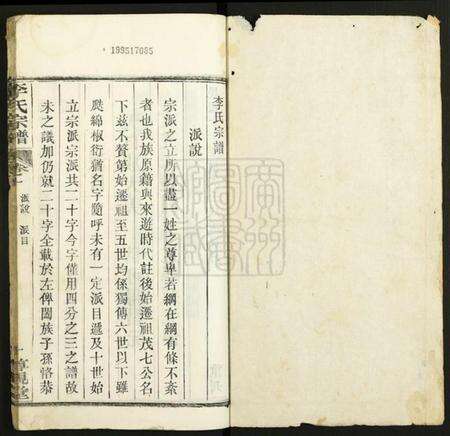 199517085
李氏宗譜
派說
宗派之立所以盡一姓之尊卑若綱在綱有條不紊
者也我族原籍與來遊時代註後始遷祖茂七公名
下茲不贅第始遷祖至五世均係獨傳六世以下雖
瓞綿椒衍猶名字隨呼未有一定派目遞及十世始
立宗派宗派共二十字今字僅用四分之三之譜故
未之議加仍就二十字全載於左俾闔族子孫恪恭
李氏宗譜
派說 派目